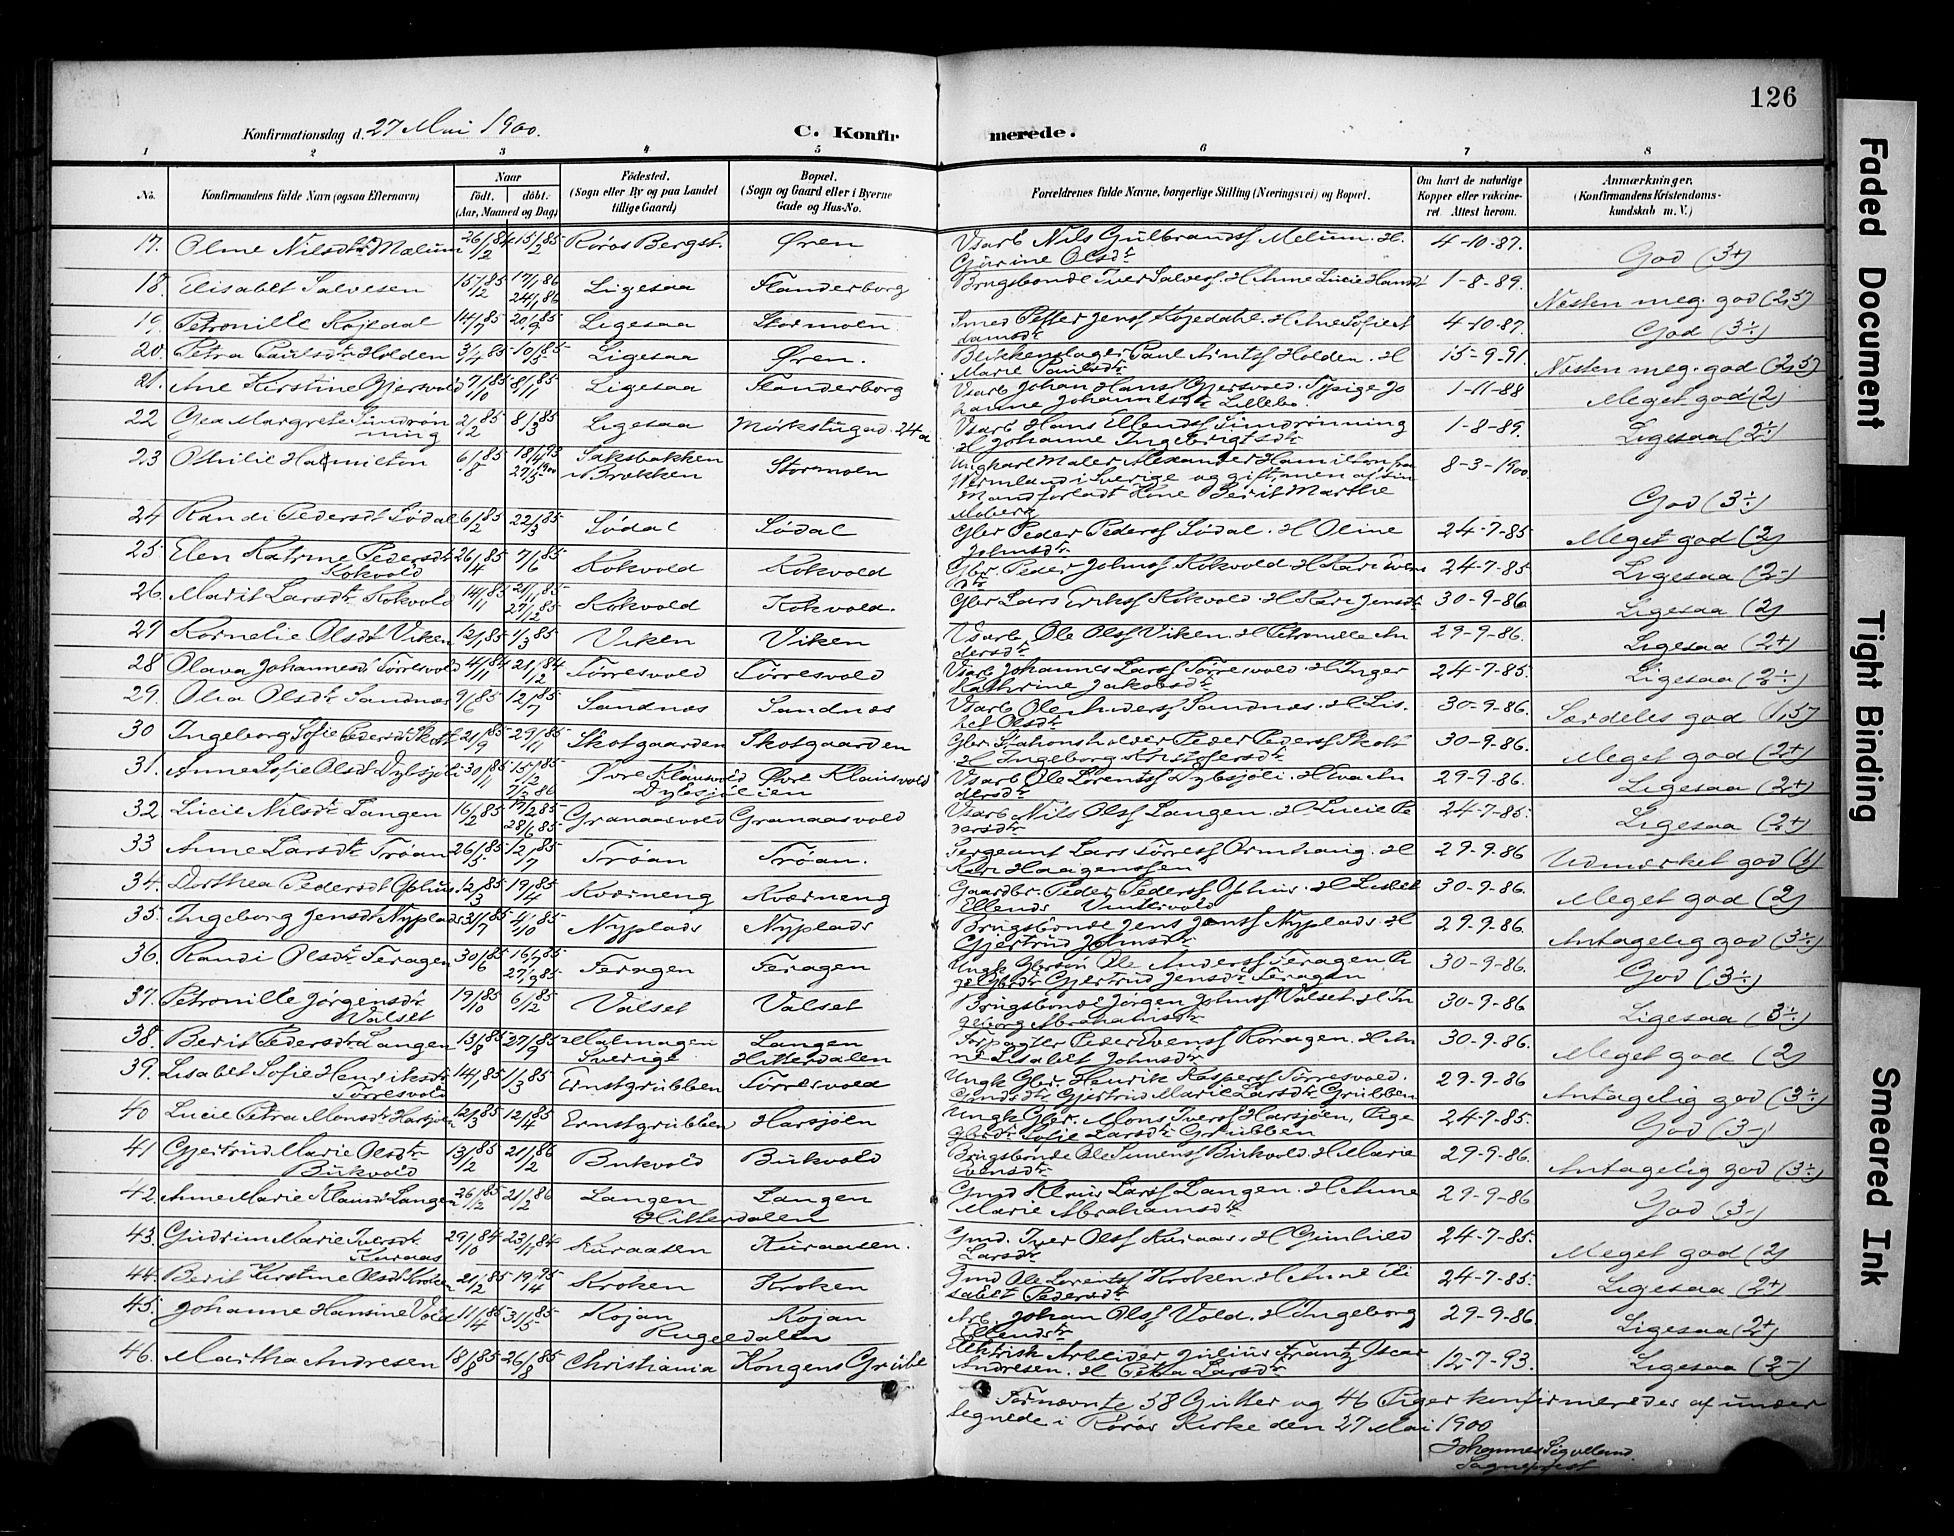 126
Konfirmationsdag d. 27 Mai 1900.
C. Konfirmerede.
1 2 3 4 5 6 7 8
No. Konfirmandens fulde Navn (ogsaa Efternavn) Naar født. døbt. (Aar, Maaned og Dag) Fødested. (Sogn eller By og paa Landet tillige Gaard) Bopæl. (Sogn og Gaard eller i Byerne Gade og Hus-No. Forældrenes fulde Navne, borgerlige Stilling (Næringsvei) og Bopæl. Om havt de naturlige Kopper eller vaccineret. Attest herom. Anmærkninger. (Konfirmandens Kristendomskundskab m. V.)
17. Olme Nilsdtr Mælum 26/12 84 15/2 85 Røros Bergst. Øren Vsarb Nils Gulbrands Melum. H. Gurine Olsdtr 4-10-87. God (3+)
18. Elisabet Salvesen 15/12 85 17/1 86 24/1 86 Ligesaa Flanderborg Brugsbonde Iver Salves. H Anne Lucie Hansd 1-8-89. Nesten meg. god (2,5)
19. Petronille Kojedal 14/7 85 20/9 85 Ligesaa Stormoen Smed Petter Jens Kojedahl. H Ane Sofie Adamsdtr 4-10-87. God (3÷)
20. Petra Paulsdtr Holden 3/4 85 10/5 85 Ligesaa Øren. Blikkenslager Paul Arnts Holden. H Marie Paulsdtr 15-9-91. Nesten meg. god (2,5)
21. Ane Kirstine Gjersvold 7/10 85 8/11 85 Ligesaa Flanderborg Vsarb Johan Hans Gjersvold. Pige Johanne Johannesdtr Lillebo. 1-11-88 Meget god (2)
22 Gea Margrete Sundrønning 2/2 85 8/3 85 Ligesaa Mørkstugad. 24a Vsarb Hans Ellends Sundrønning H Johanne Ingebrigtsdtr 1-8-89. Ligesaa (2÷)
23 Othilie Hamilton 6/8 85 18/4 93 27/5 1900 Saksbakken i Brekken Stormoen Ungkarl Maler Alexander Hamilton fra Wermland i Sverige og gift, men af sin Mand forladt Kone Berit Marthe Moberg 8-3-1900. God (3÷)
24 Randi Pedersdt Sødal 6/2 85 22/3 85 Sødal Sødal Gbr Peder Peders Sødal. H Oline Johnsdtr 24-7-85 Meget god (2)
25. Elen Katrine Pedersdt Kokvold 26/4 85 7/6 85 Kokvold Kokvold Gbr. Peder Johns Kokvold H Kari Evensdtr 24-7-85 Ligesaa (2-)
26. Marit Larsdtr Kokvold 14/11 85 21/11 85 27/12 85 Kokvold Kokvold. Gbr Lars Eriks Kokvold H Kari Jensdtr 30-9-86 Ligesaa (2)
27 Kornelie Olsdt Viken 12/1 85 1/3 85 Viken Viken Vsarb. Ole Ols Viken. H Petronille Andersdtr 29-9-86. Ligesaa (2+)
28 Olava Johannesd Tørresvold 4/11 84 21/12 84 Tørresvold Tørresvold Vsarb Johannes Lars Tørresvold. H Inger Kathrine Jakobsdtr 24-7-85. Ligesaa (2÷)
29. Olia Olsdtr Sandnæs 9/6 85 12/7 85 Sandnæs Sandnæs Vsarb Ole Anders Sandnæs. H Lisbet Olsdtr 30-9-86. Særdeles god (1,5)
30 Ingeborg Sofie Pedersdt Skott 21/9 85 29/11 85 Skotgaarden Skotgaarden Gbr. Stationsholder Peder Peders Skott H Ingeborg Kristofersdtr 30-9-86. Meget god (2+)
31. Anne Sofie Olsdt Dybsjøli 30/11 85 15/12 85 7/2 86 Øvre Klausvold Dybsjølien Øvre Klausvold Vsarb Ole Lorents Dybsjøli. H Eva Andersdtr 29-9-86. Ligesaa (2+)
32. Lucie Nilsdt Langen 16/2 85 17/2 85 28/6 85 Granaasvold Granaasvold Vsarb Nils Ols Langen. H Lucie Pedersdtr 24-7-85. Ligesaa (2+)
33 Anne Larsdtr Trøan 26/5 85 12/7 85 Trøan Trøan. Sergeant Lars Tørres Ormhaug. H Kari Haagenssen 29-9-86 Udmerket god (1)
34. Dorthea Pedersdt Gjolius 12/3 85 19/4 85 Kværneng Kværneng Gaardbr. Peder Peders Gjolius. H Lisbet Ellends Vintervold 30-9-86. Meget god (2)
35. Ingeborg Jensdt Nyplads 31/7 85 4/10 85 Nyplads Nyplads Brugsbonde Jens Jens Nyplads H Gjertrud Johnsdtr 29-9-86. Antagelig god (3÷)
36. Randi Olsdtr Feragen 30/6 85 16/7 85 27/9 85 Feragen Feragen Ungk Gbrsøn Ole Anders Feragen Pige Gbrdt Gjertrud Jensdtr Feragen 30-9-86. God (3÷)
37. Petronille Jørgensdtr Valset 19/10 85 6/12 85 Valset Valset Brugsbonde Jørgen Johns Valset. H Ingeborg Abrahamsdtr 30-9-86 Ligesaa (3÷)
38. Berit Pedersdtr Langen 13/8 85 27/9 85 Malmagen Sverige Langen Hitterdalen Forpagter Peder Evens Røragen. H Anne Lisabet Johnsdtr 30-9-86. Meget god (2)
39. Lisabet Sofie Henriksdtr Tørresvold 14/1 85 1/3 85 Ernstgrubben Tørresvold Ungk Gbr. Henrik Kaspers Tørresvold. Gmdsdtr Gjertrud Marie Larsdt Grubben 29-9-86 Antagelig god (3÷)
40 Lucie Petra Monsdt Harsjøen 12/3 85 12/4 85 Ernstgrubben Harsjøen Ungk Gbr. Mons Ivers Harsjøen, Pige Gbrdt Sofie Larsdt Grubben 24-7-85. God (3-)
41 Gjertrud Marie Olsdtr Bukvold 13/12 85 21/2 86 Bukvold Bukvold Brugsbonde Ole Simens Bukvold H Marie Evensdtr 29-9-86. Antagelig god (3÷)
42. Anne Marie Klausdt Langen 26/12 85 21/2 86 Langen Hitterdalen Langen Gmd Klaus Lars Langen. H Anne Marie Abrahamsdtr 29-9-86 God (3-)
43. Gudrun Marie Iversdt Kuraas 29/10 84 23/11 84 Kuraasen Kuraasen. Gmd. Iver Ols Kuraas. H Gunhild Larsdtr 24-7-85. Meget god (2)
44. Berit Kirstine Olsdt Kroken 21/2 85 19/4 95 Kroken Kroken Gmd Ole Lorents Kroken H Anne Elisabet Pedersdtr 24-7-85. Ligesaa (2+)
45. Johanne Hansine Vold 11/4 85 31/5 85 Kojan Rugeldalen Kojan Arb. Johan Ols Vold. H Ingeborg Ellendsdtr 29-9-86 Ligesaa (2+)
46. Martha Andresen 18/8 85 26/8 85 Christiania Kongens Grube Elektrisk Arbeider Julius Frantz Oscar Andresen. H Petra Larsdtr 12-7-93. Ligesaa (2-)
Fornævnte 38 Gutter og 46 Piger konfirmeredes af undertegnede i Røros Kirke den 27 Mai 1900
Johannes Sigvelland.
Sogneprest
Faded Document
Tight Binding
Smeared Ink